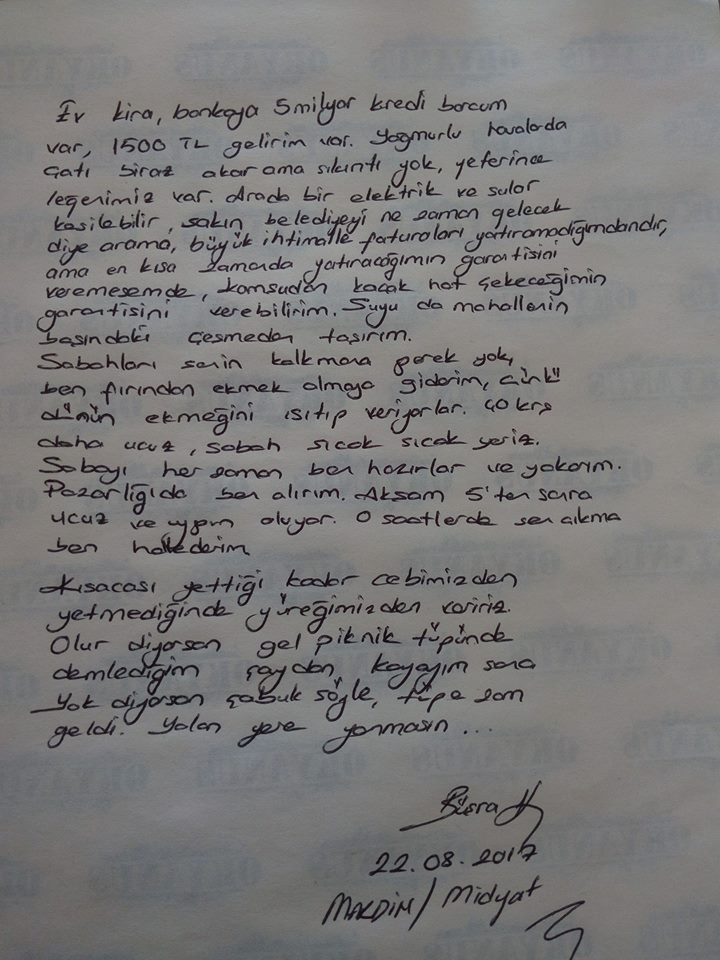 Ev kira, bankaya 5 milyar kredi borcum
var, 1500 TL gelirim var. Yağmurlu havalarda
çatı biraz akar ama sıkıntı yok, yeterince
leğenimiz var. Arada bir elektrik ve sular
kesilebilir, sakın belediyeyi ne zaman gelecek
diye arama, büyük ihtimalle faturaları yatıramadığımdandır,
ama en kısa zamanda yatıracağımın garantisini
veremesemde, komşudan kaçak hat çekeceğimin
garantisini verebilirim. Suyu da mahallenin
başındaki çeşmeden taşırım.
Sabahları senin kalkmana gerek yok,
ben fırından ekmek almaya giderim, çünkü
dünün ekmeğini ısıtıp veriyorlar. 40 krş
daha ucuz, sabah sıcak sıcak yeriz.
Sobayı her zaman ben hazırlar ve yakarım.
Pazarlığıda ben alırım. Akşam 5'ten sonra
ucuz ve uygun oluyor. O saatlerde sen çıkma
ben hallederim
Kısacası yettiği kadar cebimizden
yetmediğinde yüreğimizden veririz.
Olur diyorsan gel piknik tüpünde
demlediğim çaydan, koyayım sana
Yok diyorsan çabuk söyle, tüpe zam
geldi. Yalan yere yanmasın ...
Büşra H
22.08.2017
MARDİN / Midyat
OKYANUS